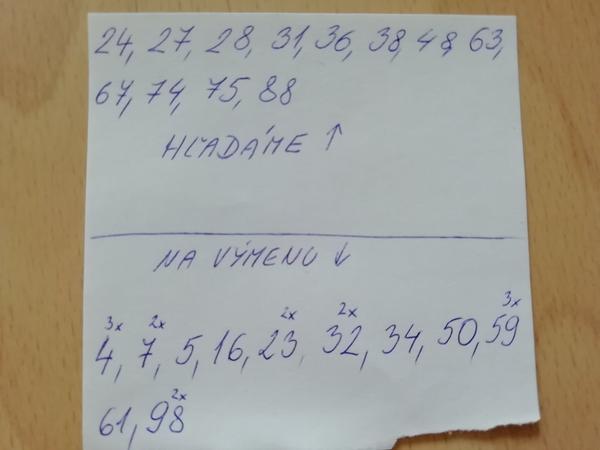 24, 27, 28, 31, 36, 38, 48, 63,
67, 74, 75, 88
HĽADÁME ↑
NA VÝMENU ↓
3x 2x 2x 2x 3x
4, 7, 5, 16, 23, 32, 34, 50, 59
2x
61, 98